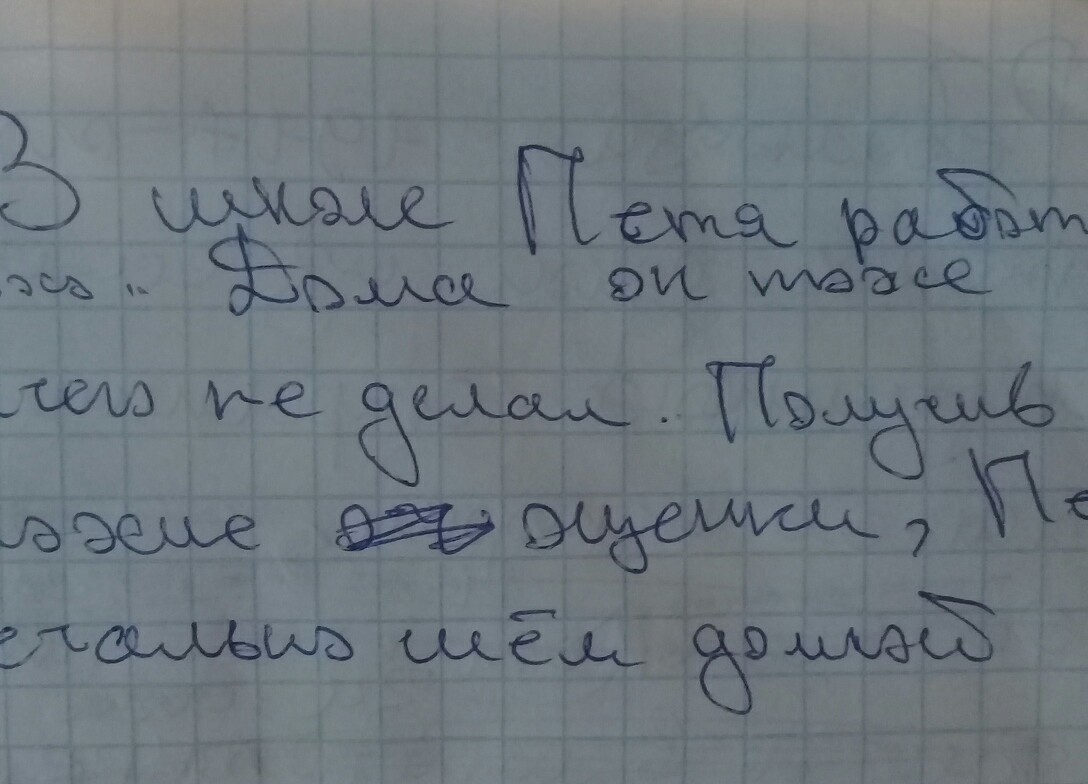 В школе Петя работ
хо.. Дома он тоже
чего не делал. Получив
лохие оценки, Пе
ечально шёл домой